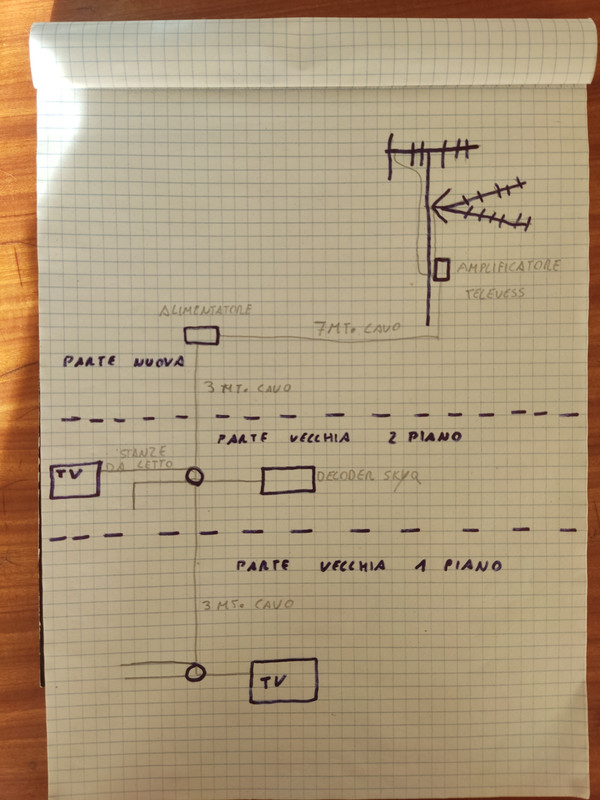 AMPLIFICATORE
TELEVESS
ALIMENTATORE
7 MT. CAVO
PARTE NUOVA
3 MT. CAVO
PARTE VECCHIA 2 PIANO
STANZE
DA LETTO
TV
DECODER SKYQ
PARTE VECCHIA 1 PIANO
3 MT. CAVO
TV